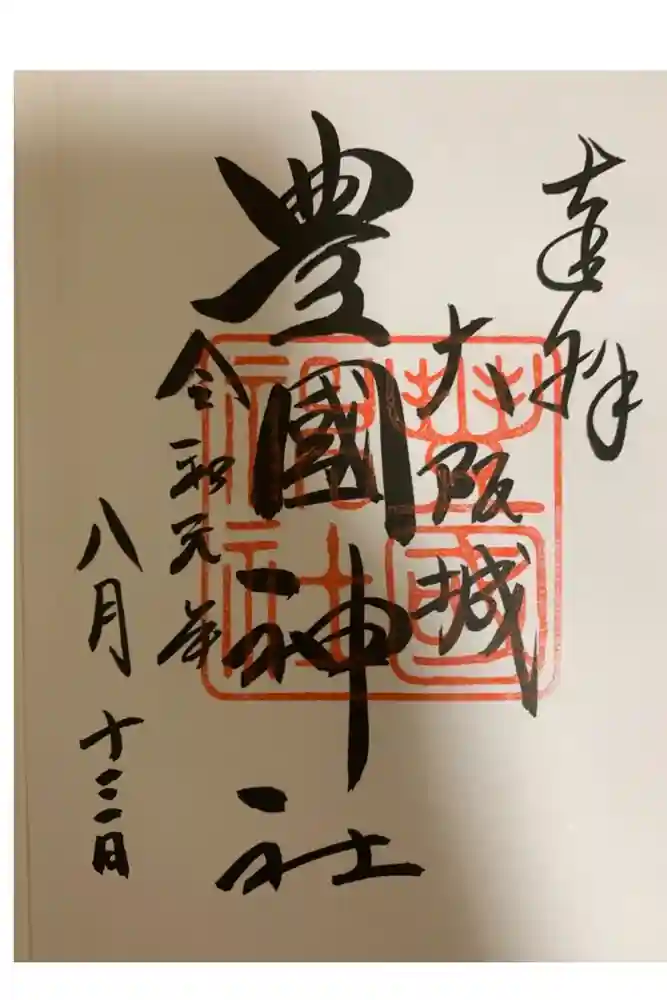 奉拝
大阪城
豊國神社
令和元年
八月十三日
豊國
神社